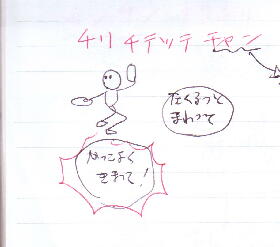 チリチテツテチャン
左くるっと
まわって
かっこよく
きまって!